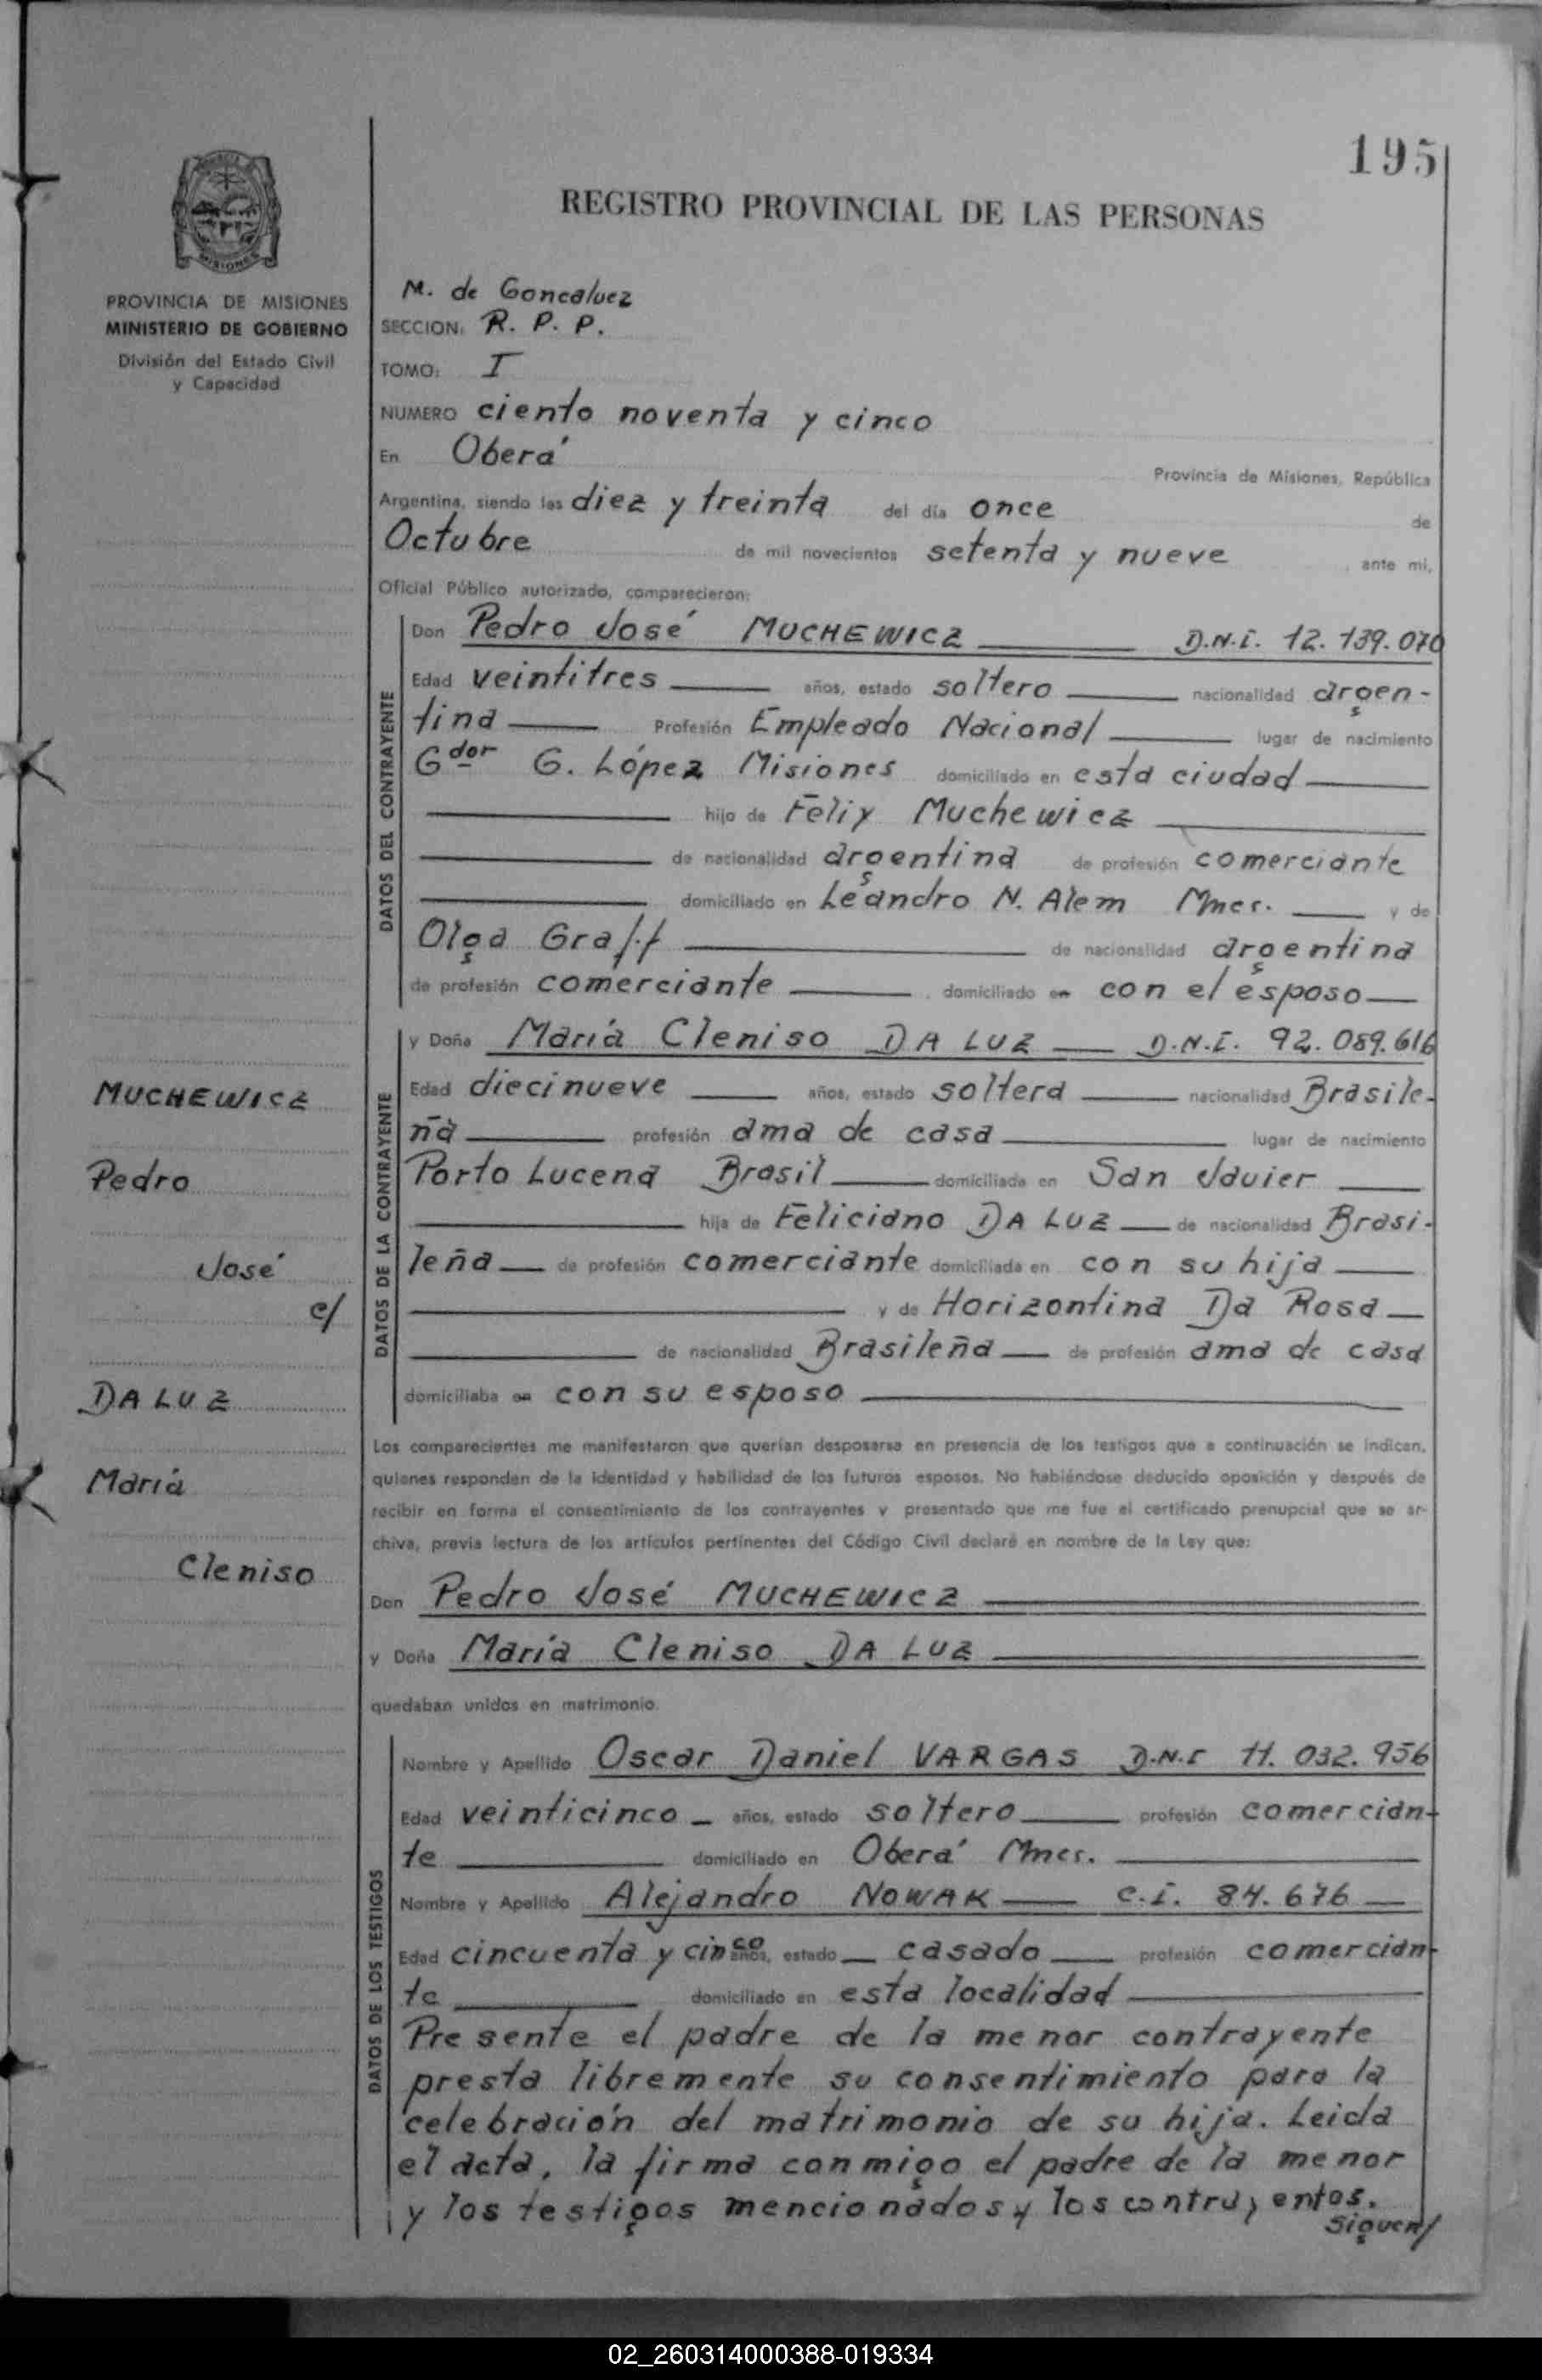 195
REGISTRO PROVINCIAL DE LAS PERSONAS
MISIONES
PROVINCIA DE MISIONES
MINISTERIO DE GOBIERNO
División del Estado Civil
y Capacidad
M. de Goncalvez
SECCION: R. P. P.
TOMO: I
NUMERO ciento noventa y cinco
En Oberá Provincia de Misiones, República
Argentina, siendo las diez y treinta del día once de
Octubre de mil novecientos setenta y nueve, ante mí,
Oficial Público autorizado, comparecieron:
DATOS DEL CONTRAYENTE
Don Pedro José MUCHEWICZ D.N.I. 12.139.070
Edad veintitres años, estado soltero nacionalidad argen-
tina Profesión Empleado Nacional lugar de nacimiento
Gdor G. López Misiones domiciliado en esta ciudad
hijo de Felix Muchewicz
de nacionalidad argentina de profesión comerciante
domiciliado en Leandro N. Alem Mnes. y de
Olga Graff de nacionalidad argentina
de profesión comerciante domiciliado en con el esposo
DATOS DE LA CONTRAYENTE
y Doña María Cleniso DA LUZ D.N.I. 92.089.616
Edad diecinueve años, estado soltera nacionalidad Brasile-
ña profesión ama de casa lugar de nacimiento
Porto Lucena Brasil domiciliada en San Javier
hija de Feliciano DA LUZ de nacionalidad Brasi-
leña de profesión comerciante domiciliada en con su hija
y de Horizontina Da Rosa
de nacionalidad Brasileña de profesión ama de casa
domiciliaba en con su esposo
MUCHEWICZ
Pedro
José
c/
DA LUZ
María
Cleniso
Los comparecientes me manifestaron que querían desposarse en presencia de los testigos que a continuación se indican,
quienes responden de la identidad y habilidad de los futuros esposos. No habiéndose deducido oposición y después de
recibir en forma el consentimiento de los contrayentes y presentado que me fue el certificado prenupcial que se ar-
chiva, previa lectura de los artículos pertinentes del Código Civil declaré en nombre de la Ley que:
Don Pedro José MUCHEWICZ
y Doña María Cleniso DA LUZ
quedaban unidos en matrimonio.
DATOS DE LOS TESTIGOS
Nombre y Apellido Oscar Daniel VARGAS D.N.I 11.032.956
Edad veinticinco años, estado soltero profesión comercian-
te domiciliado en Oberá Mnes.
Nombre y Apellido Alejandro NOWAK C.I. 84.676
Edad cincuenta y cinco años, estado casado profesión comercian-
te domiciliado en esta localidad
Presente el padre de la menor contrayente
presta libremente su consentimiento para la
celebración del matrimonio de su hija. Leida
el acta, la firma conmigo el padre de la menor
y los testigos mencionados y los contrayentes.
Siguen/
02_260314000388-019334